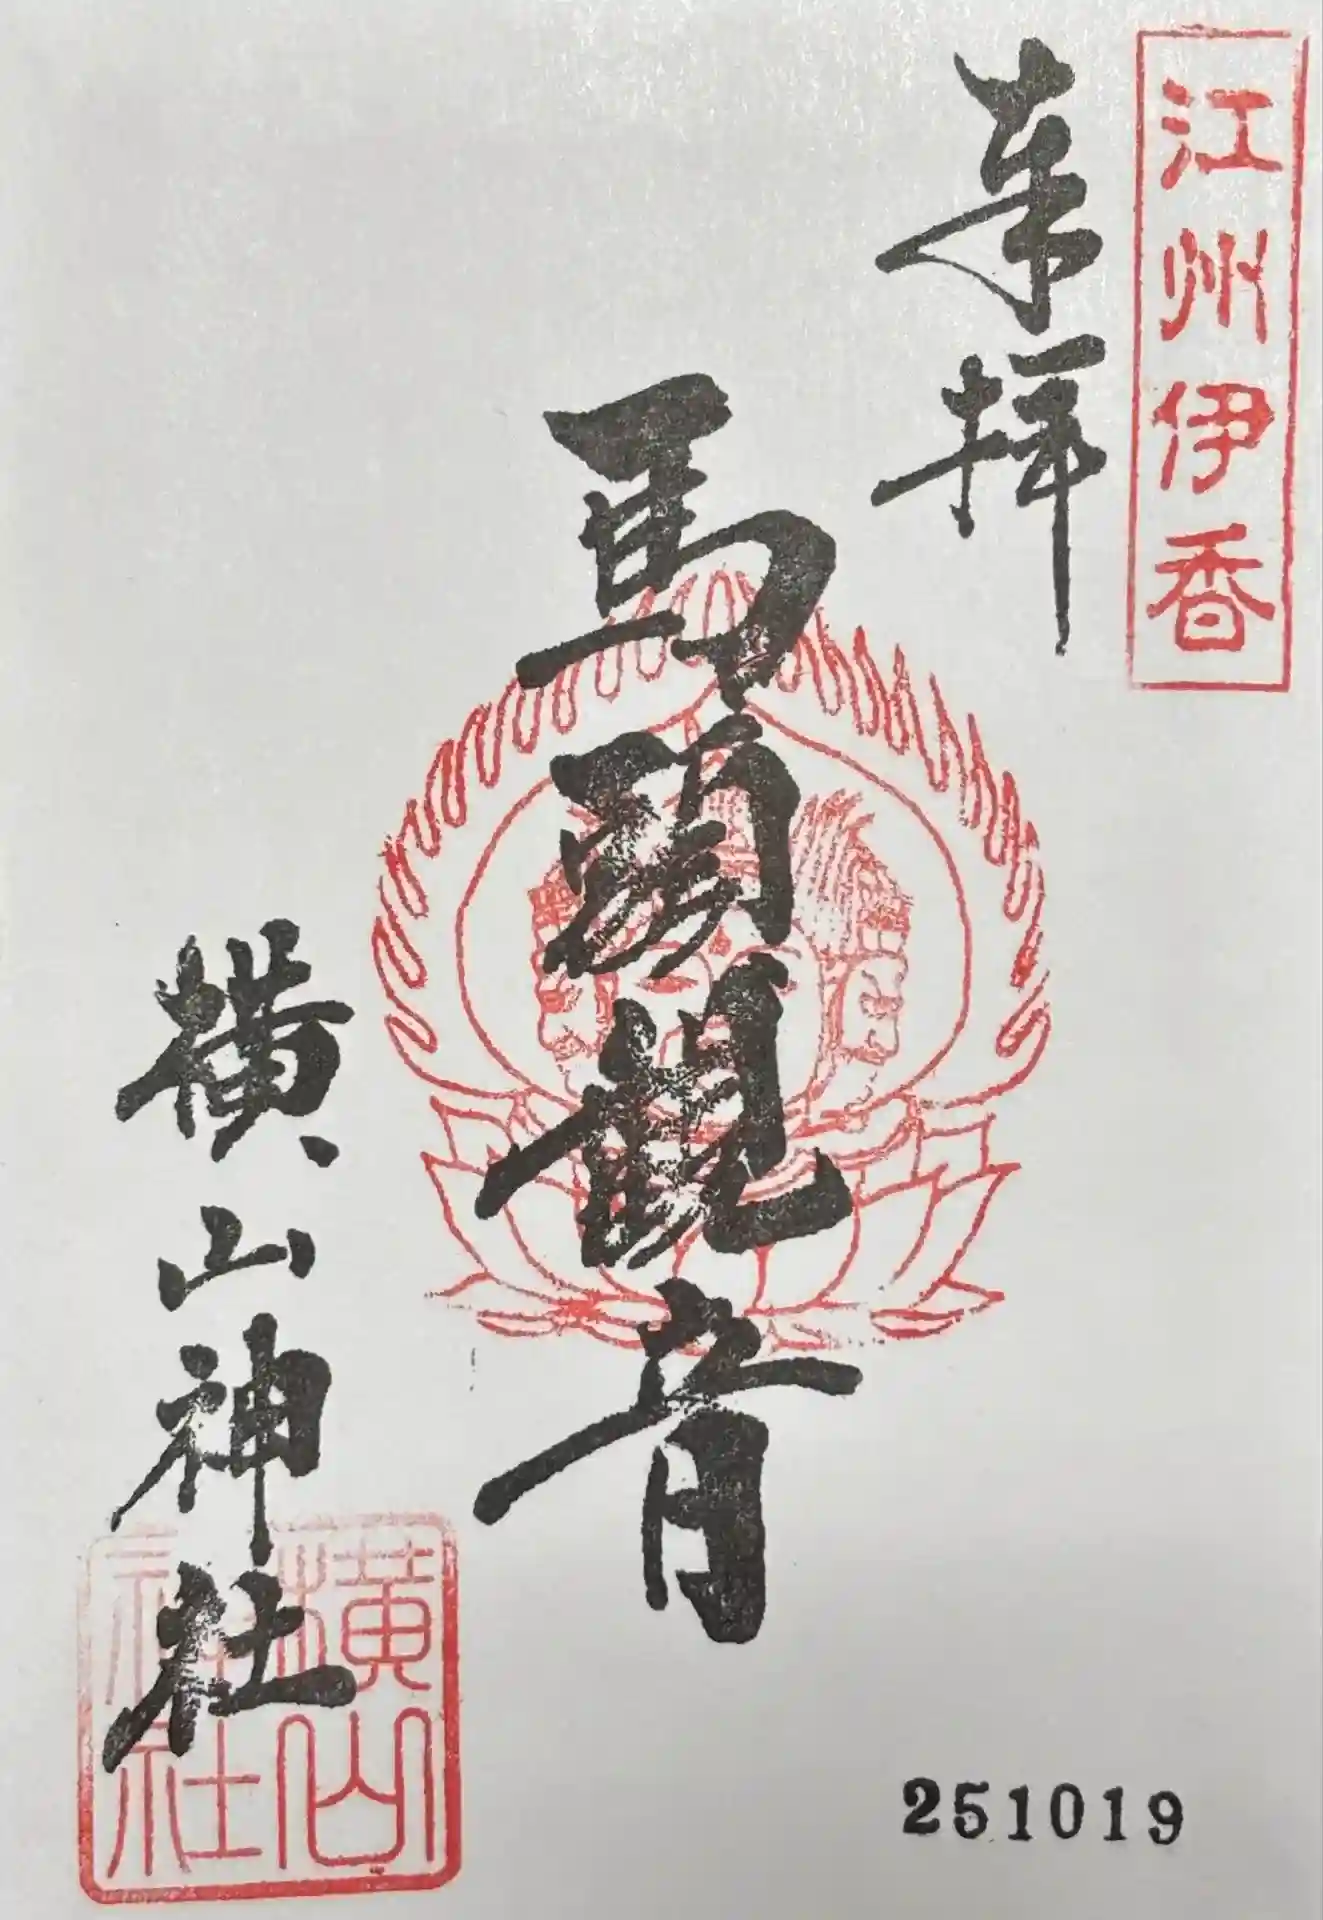 江州伊香
来拝
馬頭観音
横山神社
横山神社
251019